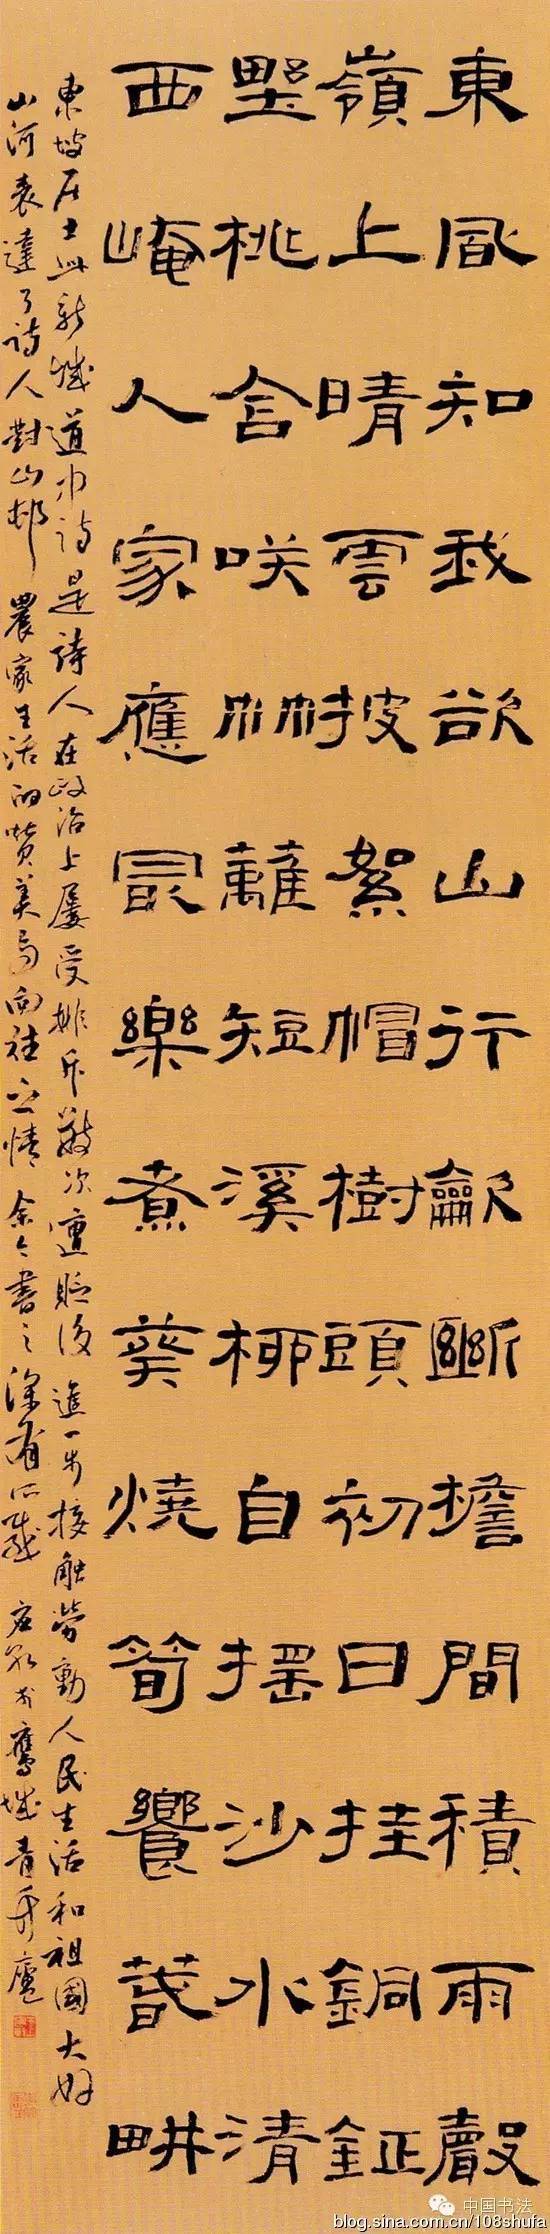 東風知我欲山行龡斷檐間積雨聲
嶺上晴雲披絮帽樹頭初日挂銅鉦
野桃含咲竹籬短溪柳自搖沙水清
西崦人家應冣樂煮葵燒筍饗春畊
東坡居士此新城道中詩是詩人在政治上屢受排斥數次遭貶後進一步接觸勞動人民生活和祖國大好
山河表達了詩人對山邨農家生活的贊美與向往之情余今書之深有所感於鷹城青廬
中国书法
blog.sina.com.cn/108shufa